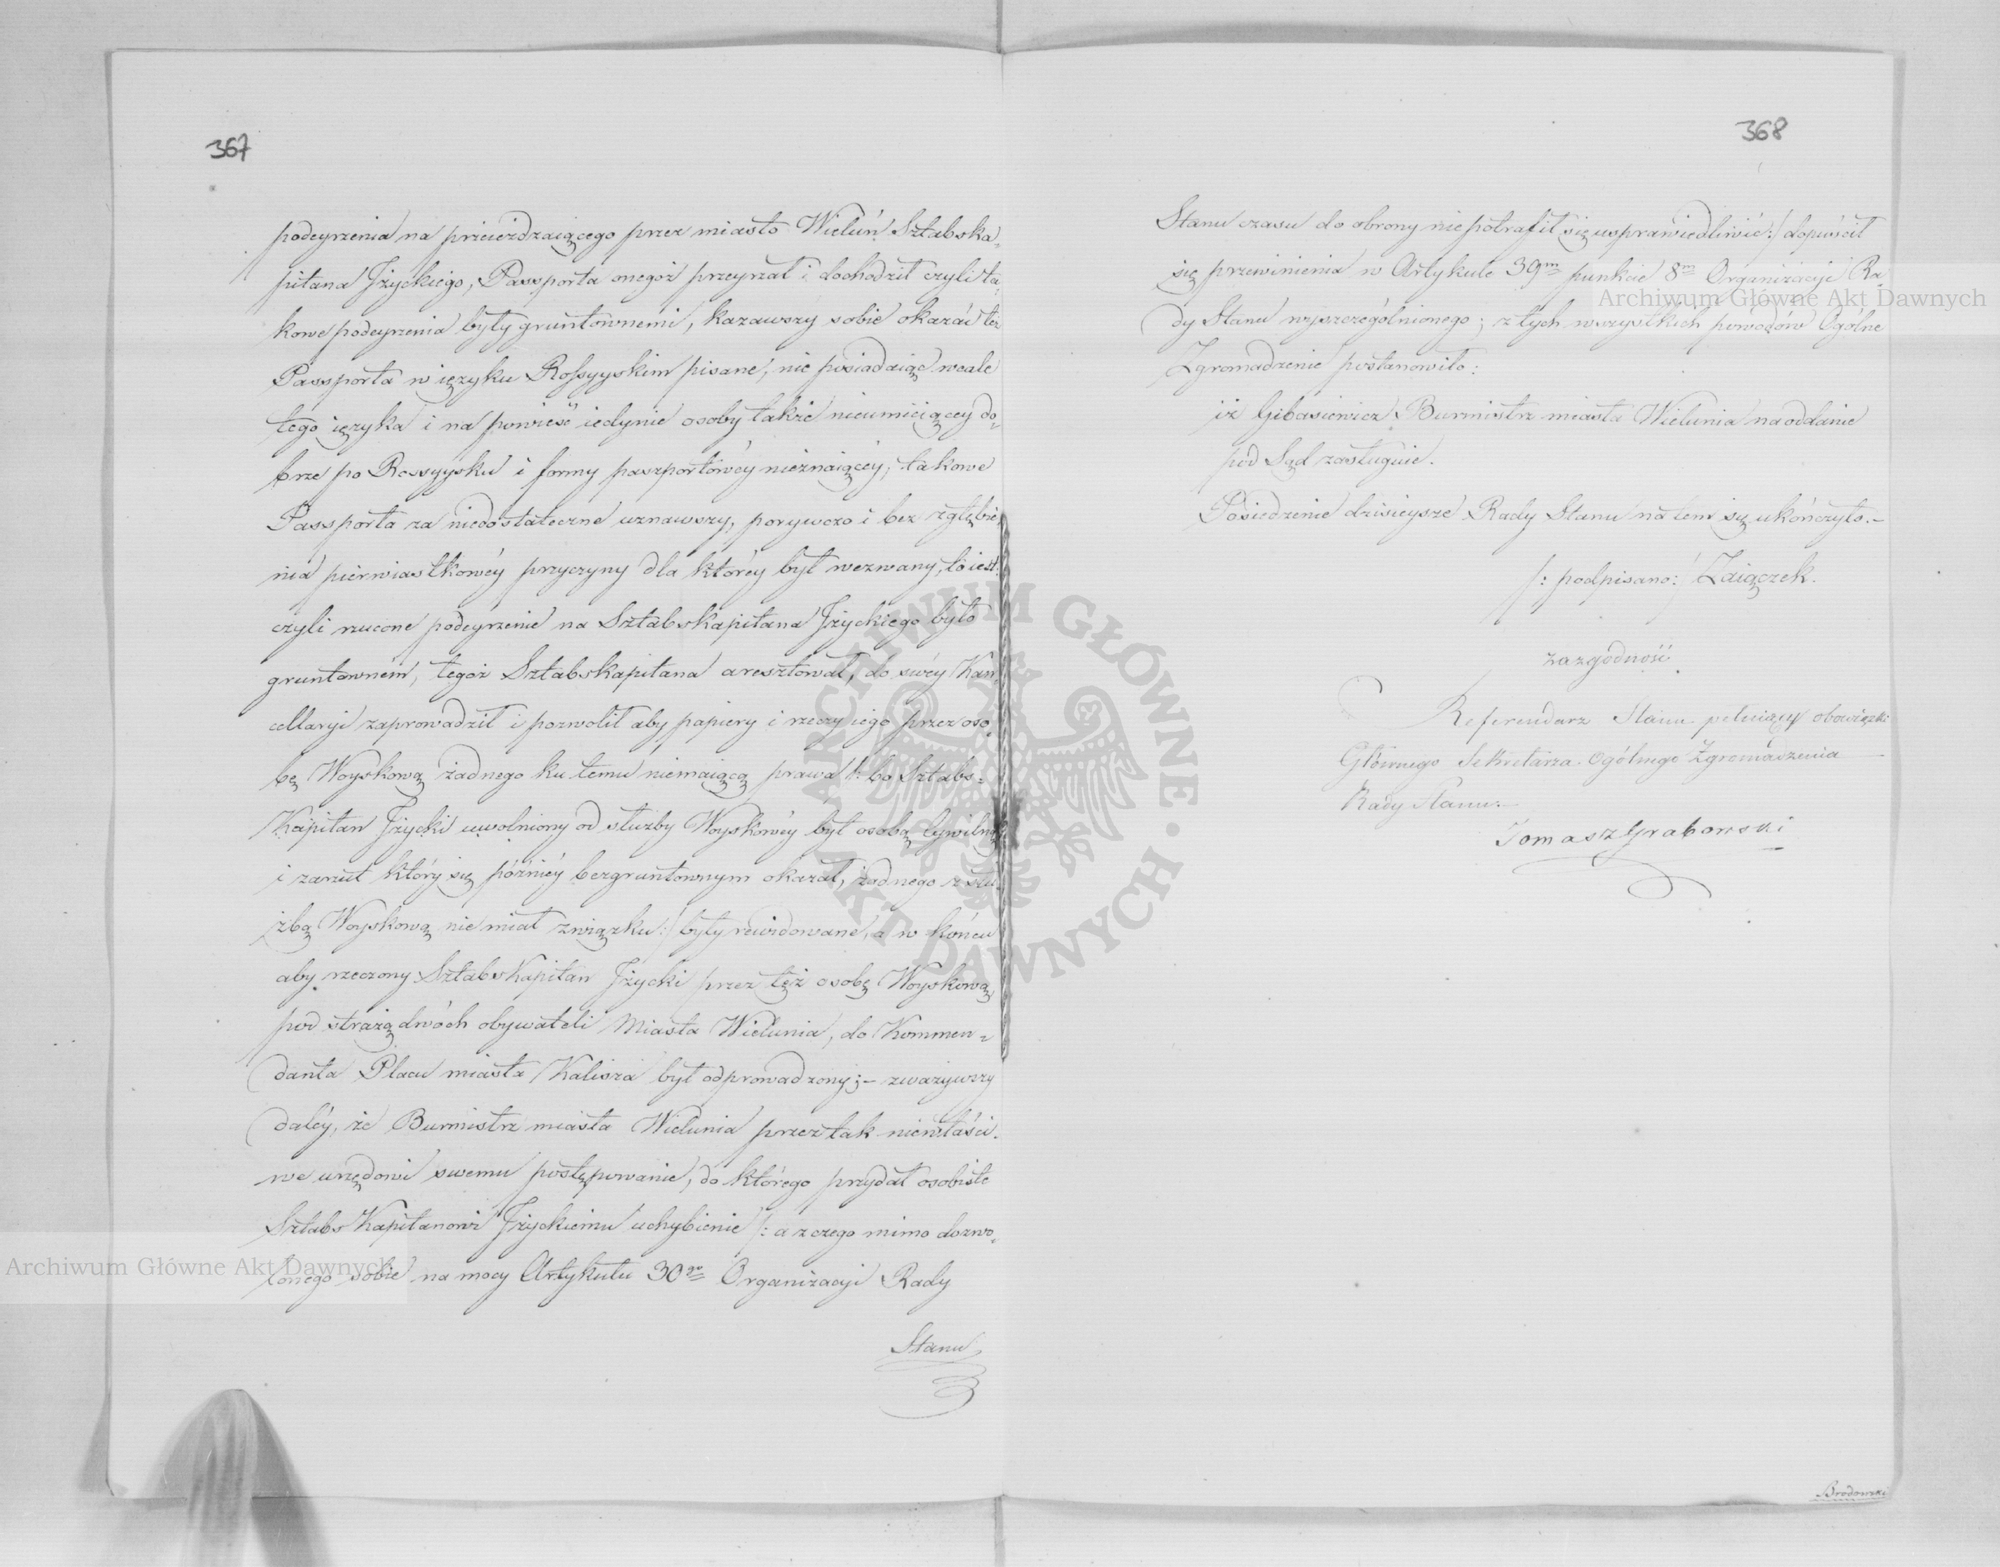 367
podeyrzenia na przeieżdzaiącego przez miasto Wieluń Sztabska„
pitana Jżyckiego, Passporta onegoż przeyrzał i dochodził czyli ta„
kowe podeyrzenia były gruntownemi, kazawszy sobie okazać też
Passporta w ięzyku Rossyyskim pisane, nie posiadaiąc wcale
tego ięzyka i na powieść iedynie osoby także nieumieiącey do„
brze po Rossyysku i formy paszportowéy nieznaiącéy, takowe
Passporta za niedostateczne uznawszy, porywczo i bez zgłębie„
nia pierwiastkowéy przyczyny dla któréy był wezwany, to iest:
czyli rzucone podeyrzenie na Sztabskapitana Jżyckiego było
gruntowném, tegoż Sztabskapitana aresztował, do swéy Kan„
cellaryi zaprowadził i pozwolił aby papiery i rzeczy iego przez oso„
bę Woyskową żadnego ku temu niemaiącą prawa /: bo Sztabs„
Kapitan Jżycki uwolniony od służby Woyskowéy był osobą cywilną
i zarzut który się późniéy bezgruntownym okazał, żadnego z słu„
żbą Woyskową nie miał związku :/ były rewidowane, a w końcu
aby rzeczony SztabsKapitan Jżycki przez też osobę Woyskową,
pod strażą dwóch obywateli Miasta Wielunia, do Kommen„
danta Placu miasta Kalisza był odprowadzony; – zważywszy
daléy, że Burmistrz miasta Wielunia przez tak niewłaści„
we urzędowi swemu postępowanie, do którego przydał osobiste
SztabsKapitanowi Jżyckiemu uchybienie /: a z czego mimo dozwo„
lonego sobie na mocy Artykułu 30go Organizacyi Rady
Stanu
368
Stanu czasu do obrony nie potrafił się usprawiedliwić :/ dopuścił
się przewinienia w Artykule 39m punkcie 8m Organizacyi Ra„
dy Stanu wyszczególnionego; z tych wszystkich powodów Ogólne
Zgromadzenie postanowiło:
iż Gibasiewicz Burmistrz miasta Wielunia na oddanie
pod Sąd zasługuie.
Posiedzenie dzisieysze Rady Stanu na tem się ukończyło. –
/: podpisano: / Zaiączek.
za zgodność
Referendarz Stanu pełniący obowiązki
Głównego Sekretarza Ogólnego Zgromadzenia
Rady Stanu. –
Tomasz Grabowski
Brodowski
Archiwum Główne Akt Dawnych
Archiwum Główne Akt Dawnych
ARCHIWUM GŁÓWNE AKT DAWNYCH